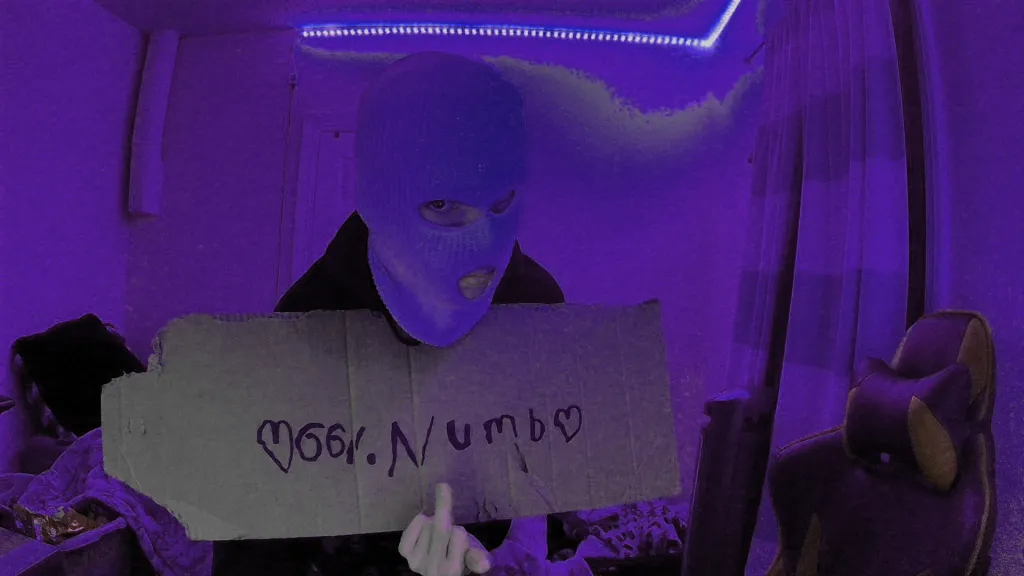 ♡66i.Numb♡